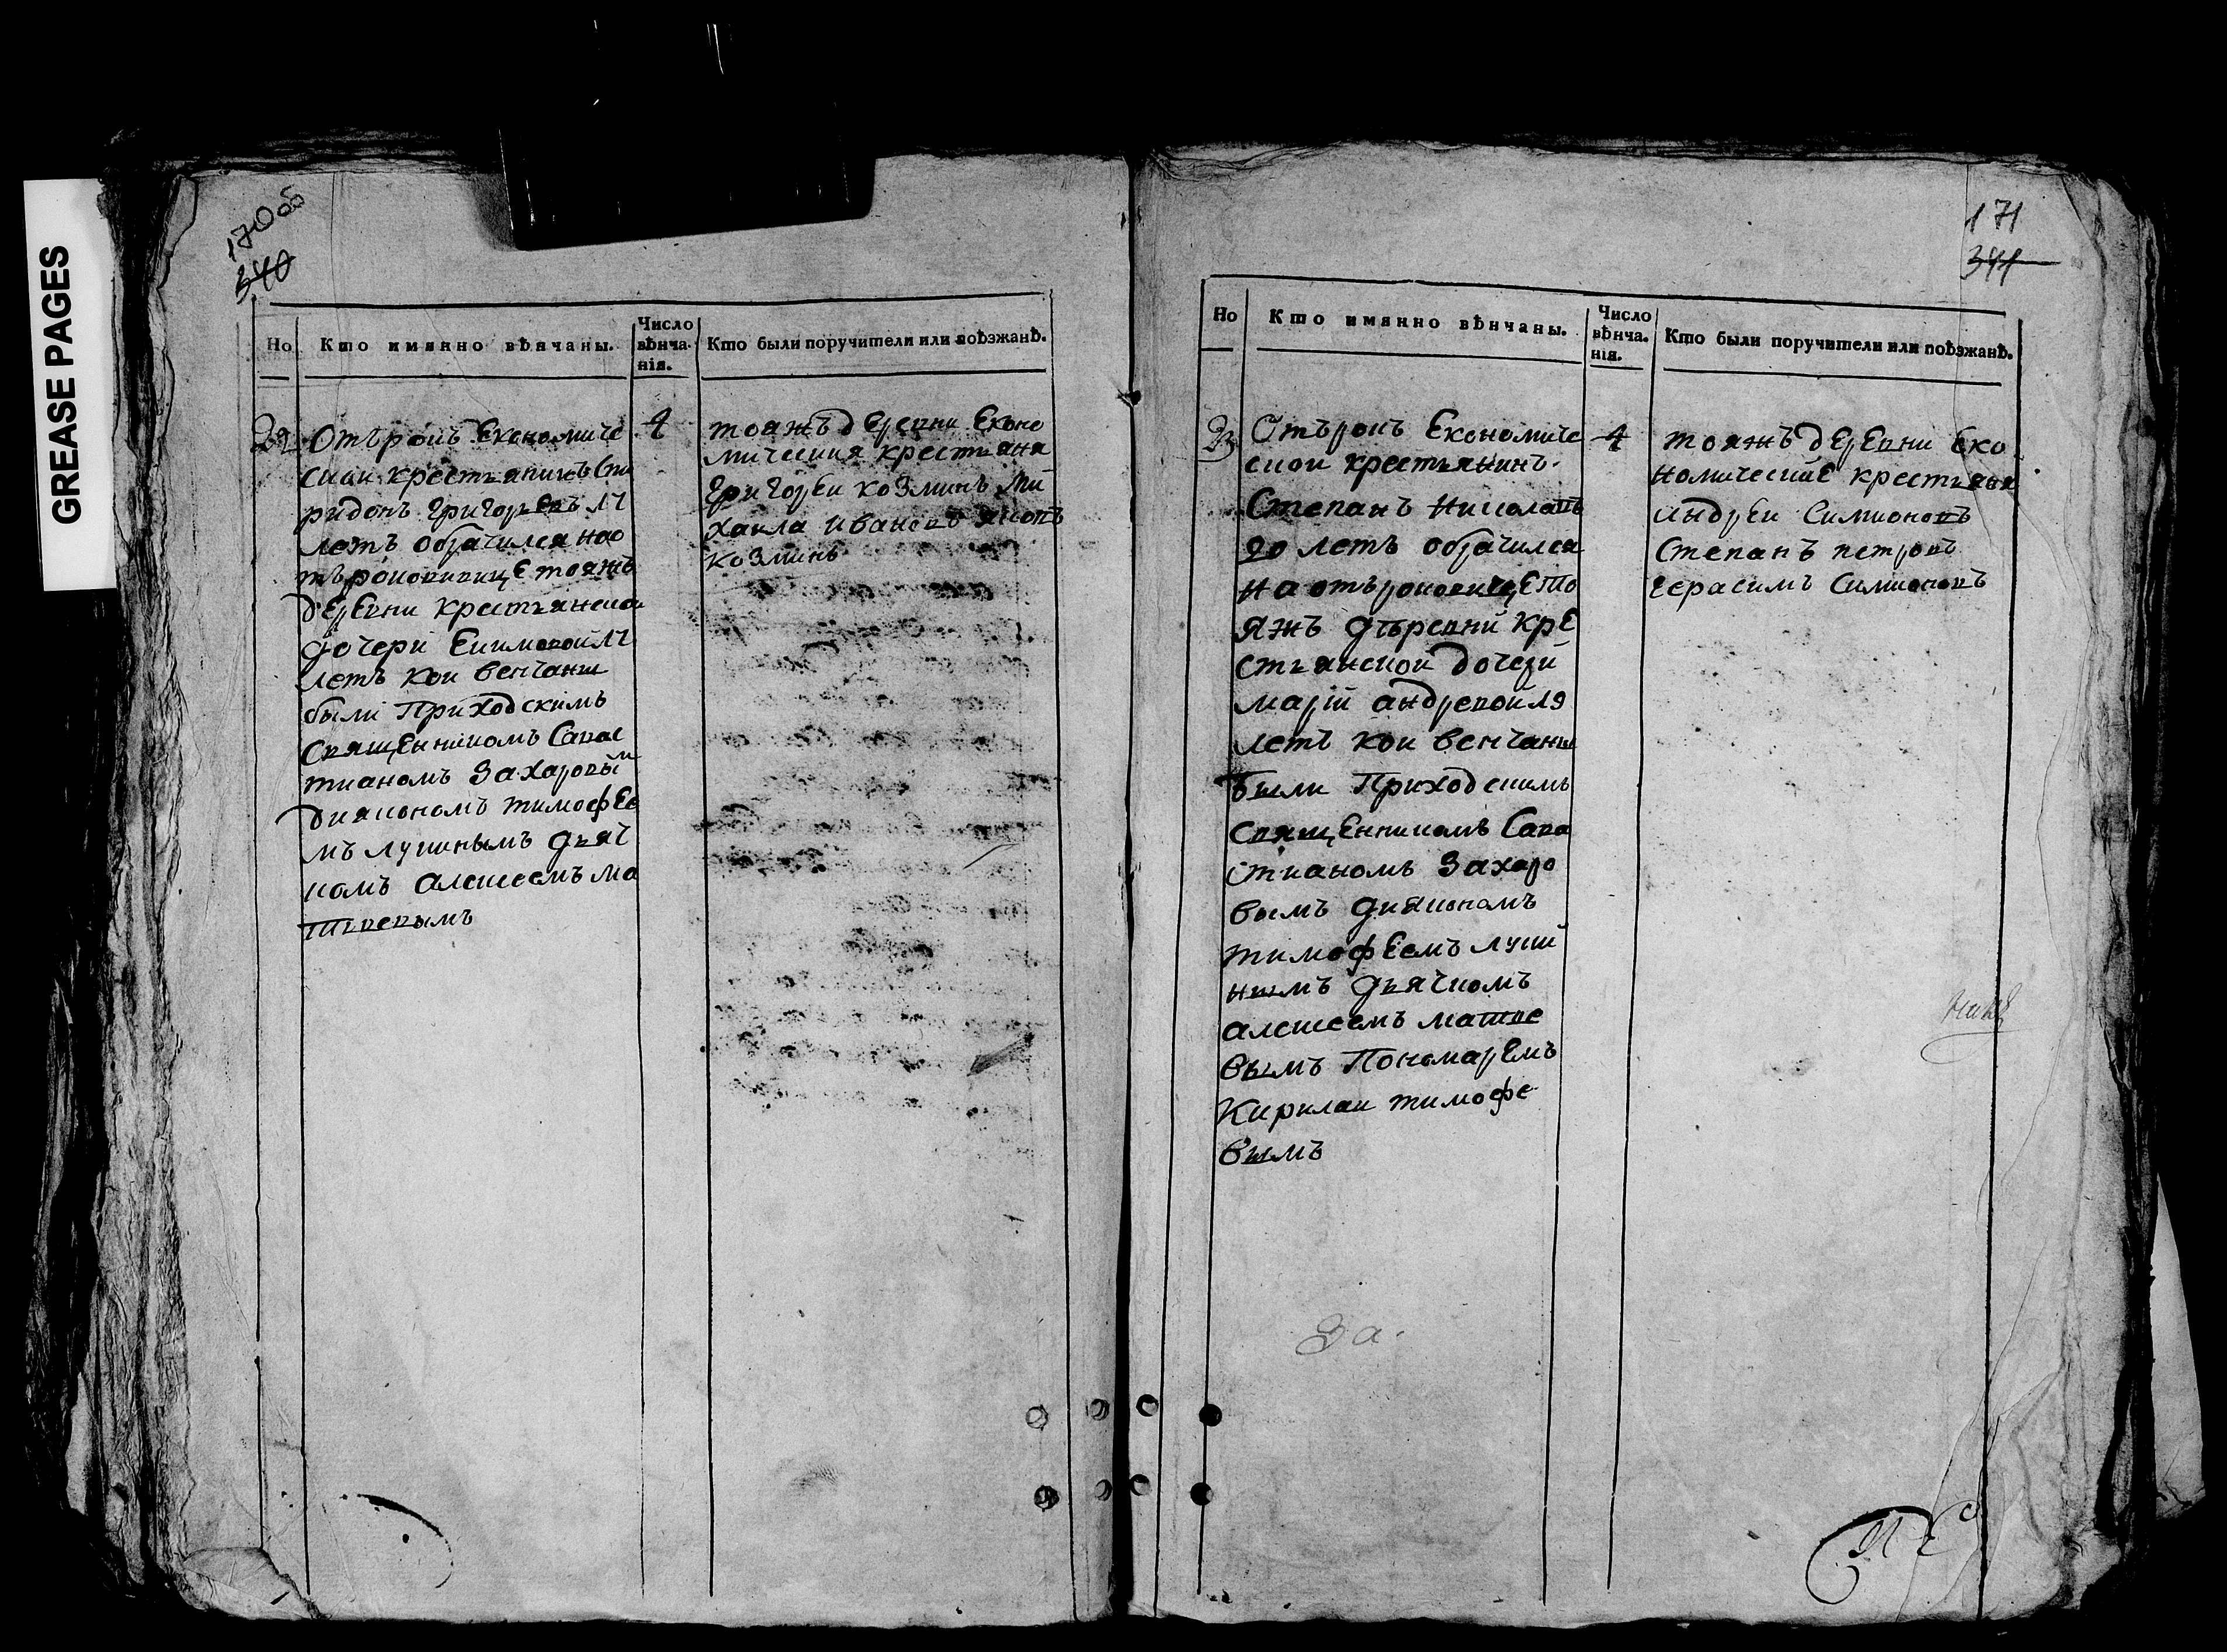 GREASE PAGES
170 об
340
Но
Кто имянно вѣнчаны.
Число вѣнча- нія.
Кто были поручители или поѣзжанѣ.
22
Отърокъ Економиче
скаи крестьянинъ Спи
ридонъ Григорьевъ 17
летъ обрачился нао
търоковице тояжъ
деревни крестьянскои
дочери
летъ кои венчаны
были Приходскимъ
Священникомъ Савас
тианомъ Захаровым
диякономъ тимофее
мъ лукинымъ дьяч
комъ алексеемъ ма
твевымъ
4
тояжъ деревни Еконо
мическия крестьяня
Григореи козминъ Ми
хаила ивановъ
козминъ
171
341
Но
Кто имянно вѣнчаны.
Число вѣнча- нія.
Кто были поручители или поѣзжанѣ.
23
Отърокъ Економиче
скои крестьянинъ
Степанъ Николавъ
20 летъ обрачился
на отъроковице то
яжъ дъревни кре
стьянскои дочери
марии андревои 19
летъ кои венчаны
были Приходскимъ
священникомъ Сава
стианомъ Захаро
вымъ диякономъ
тимофеемъ луки
нымъ дьячкомъ
алексеемъ матве
вымъ Пономаремъ
Кирилаи тимофе
вымъ
4
тояжъ деревни Еко
номическийе крестьяня
андреи Симионовъ
Степанъ петровъ
Герасимъ Симионовъ
За